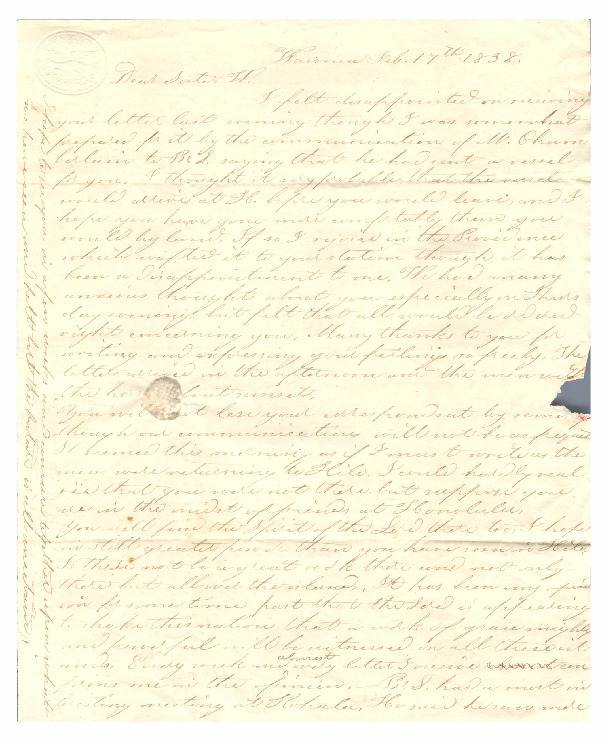 Waimea Feb. 17th 1838.
Dear Sister W.
I felt disappointed on receiving
your letter last evening though I was somewhat
prepared for it by the communication of Mr. Cham
berlain to Br L saying that he had sent a vessel
for you. I thought it very probable that the vessel
would arrive at H. before you would leave, and I
hope you have gone more comfortably than you
would by land. If so I rejoice in the Providence
which wafted it to your station though it has
been a disappointment to me. We had many
anxious thoughts about you especially on Thurs
day evening, but felt that all would be ordered
right concerning you. Many thanks to you for
writing and expressing your feelings so freely. The
letters arrived in the afternoon and the men with
the about sunset.
You will not lose your correspondent by
though our communication will not be as frequent
It seemed this morning as if I must write as the
men were returning to Hilo. I could hardly real
ize that you were not there but suppose you
are in the midst of friends at Honolulu.
You will find the Spirit of the Lord there too, I hope
in still greater power than you have seen in Hilo.
there but all over the islands. It has been my opin
ion for some time past that the Lord is appearing
to shake this nation that a work of grace mighty
and powerful will be witnessed in all these isl
ands. Every week and almost every letter I receive con
firms me in the opinion. — Br. L. had a most in
teresting meeting at Kohala. He said he saw more